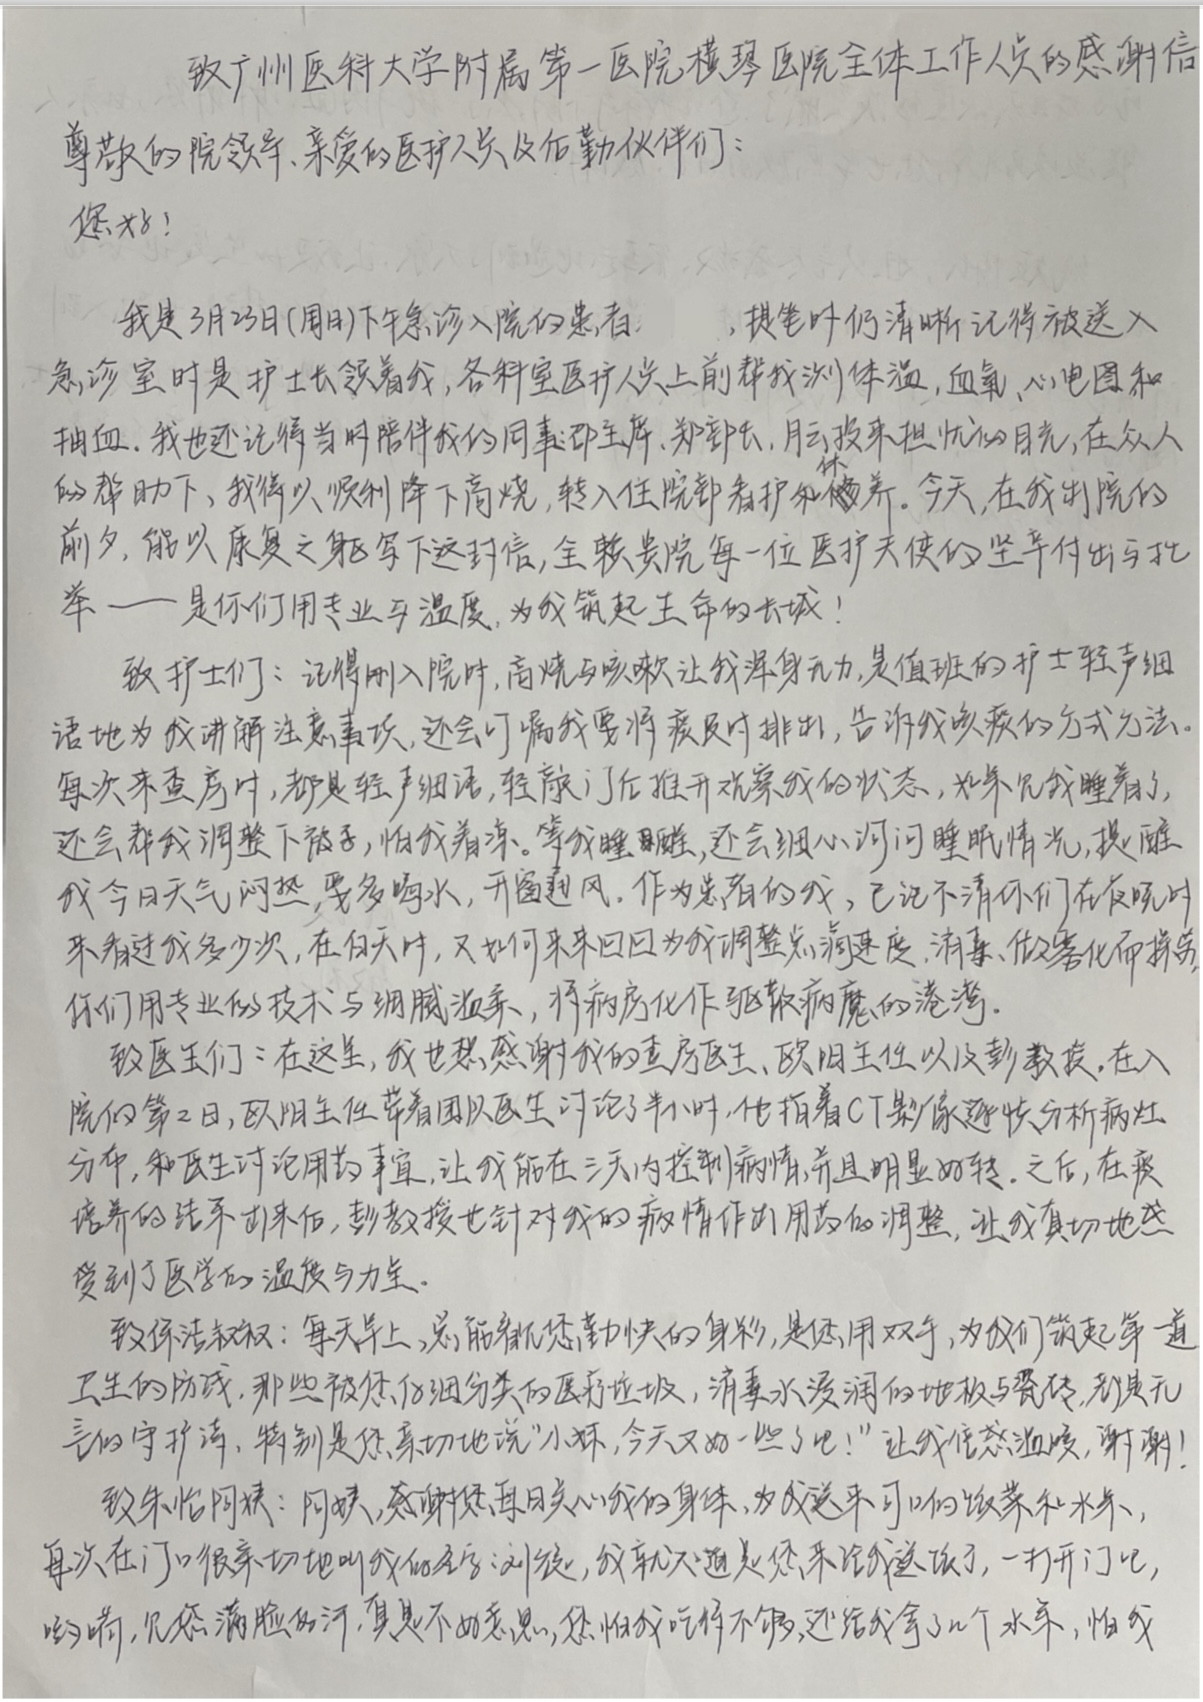 致广州医科大学附属第一医院横琴医院全体工作人员的感谢信
尊敬的院领导、亲爱的医护人员及后勤伙伴们：
您好！
我是3月23日(周日)下午急诊入院的患者，提笔时仍清晰记得被送入
急诊室时是护士长领着我，各科室医护人员上前帮我测体温，血氧、心电图和
抽血。我也还记得当时陪伴我的同事邵主席、郑部长、月云投来担忧的目光，在众人
的帮助下，我得以顺利降下高烧，转入住院部看护和休养。今天，在我出院的
前夕，能以康复之躯写下这封信，全赖贵院每一位医护天使的坚辛付出与托
举——是你们用专业与温度，为我筑起生命的长城！
致护士们：记得刚入院时，高烧与咳嗽让我浑身无力，是值班的护士轻声细
语地为我讲解注意事项，还会叮嘱我要将痰及时排出，告诉我咳痰的方式方法。
每次来查房时，都是轻声细语，轻敲门后推开观察我的状态，如果见我睡着了，
还会帮我调整下被子，怕我着凉。等我睡醒，还会细心询问睡眠情况，提醒
我今日天气闷热，要多喝水，开窗通风。作为患者的我，已记不清你们在夜晚时
来看过我多少次，在白天时，又如何来来回回为我调整点滴速度、消毒、做雾化而操劳，
你们用专业的技术与细腻温柔，将病房化作驱散病魔的港湾。
致医生们：在这里，我也想感谢我的查房医生、欧阳主任以及彭教授。在入
院的第2日，欧阳主任带着团队医生讨论了半小时，他指着CT影像逐帧分析病灶
分布，和医生讨论用药事宜，让我能在三天内控制病情，并且明显好转。之后，在痰
培养的结果出来后，彭教授也针对我的病情作出用药的调整，让我真切地感
受到了医学的温度与力量。
致保洁叔叔：每天早上，总能看见您勤快的身影，是您用双手，为我们筑起第一道
卫生的防线，那些被您仔细分类的医疗垃圾，消毒水浸润的地板与瓷砖，都是无
言的守护诗，特别是您亲切地说“小妹，今天又好一些了吧！”让我倍感温暖，谢谢！
致朱怡阿姨：阿姨，感谢您每日关心我的身体，为我送来可口的饭菜和水果，
每次在门口很亲切地叫我的名字：刘，我就知道是您来给我送饭了，一打开门吧，
哟嗬，见您满脸的汗，真是不好意思，您怕我吃得不够，还给我拿了几个水果，怕我